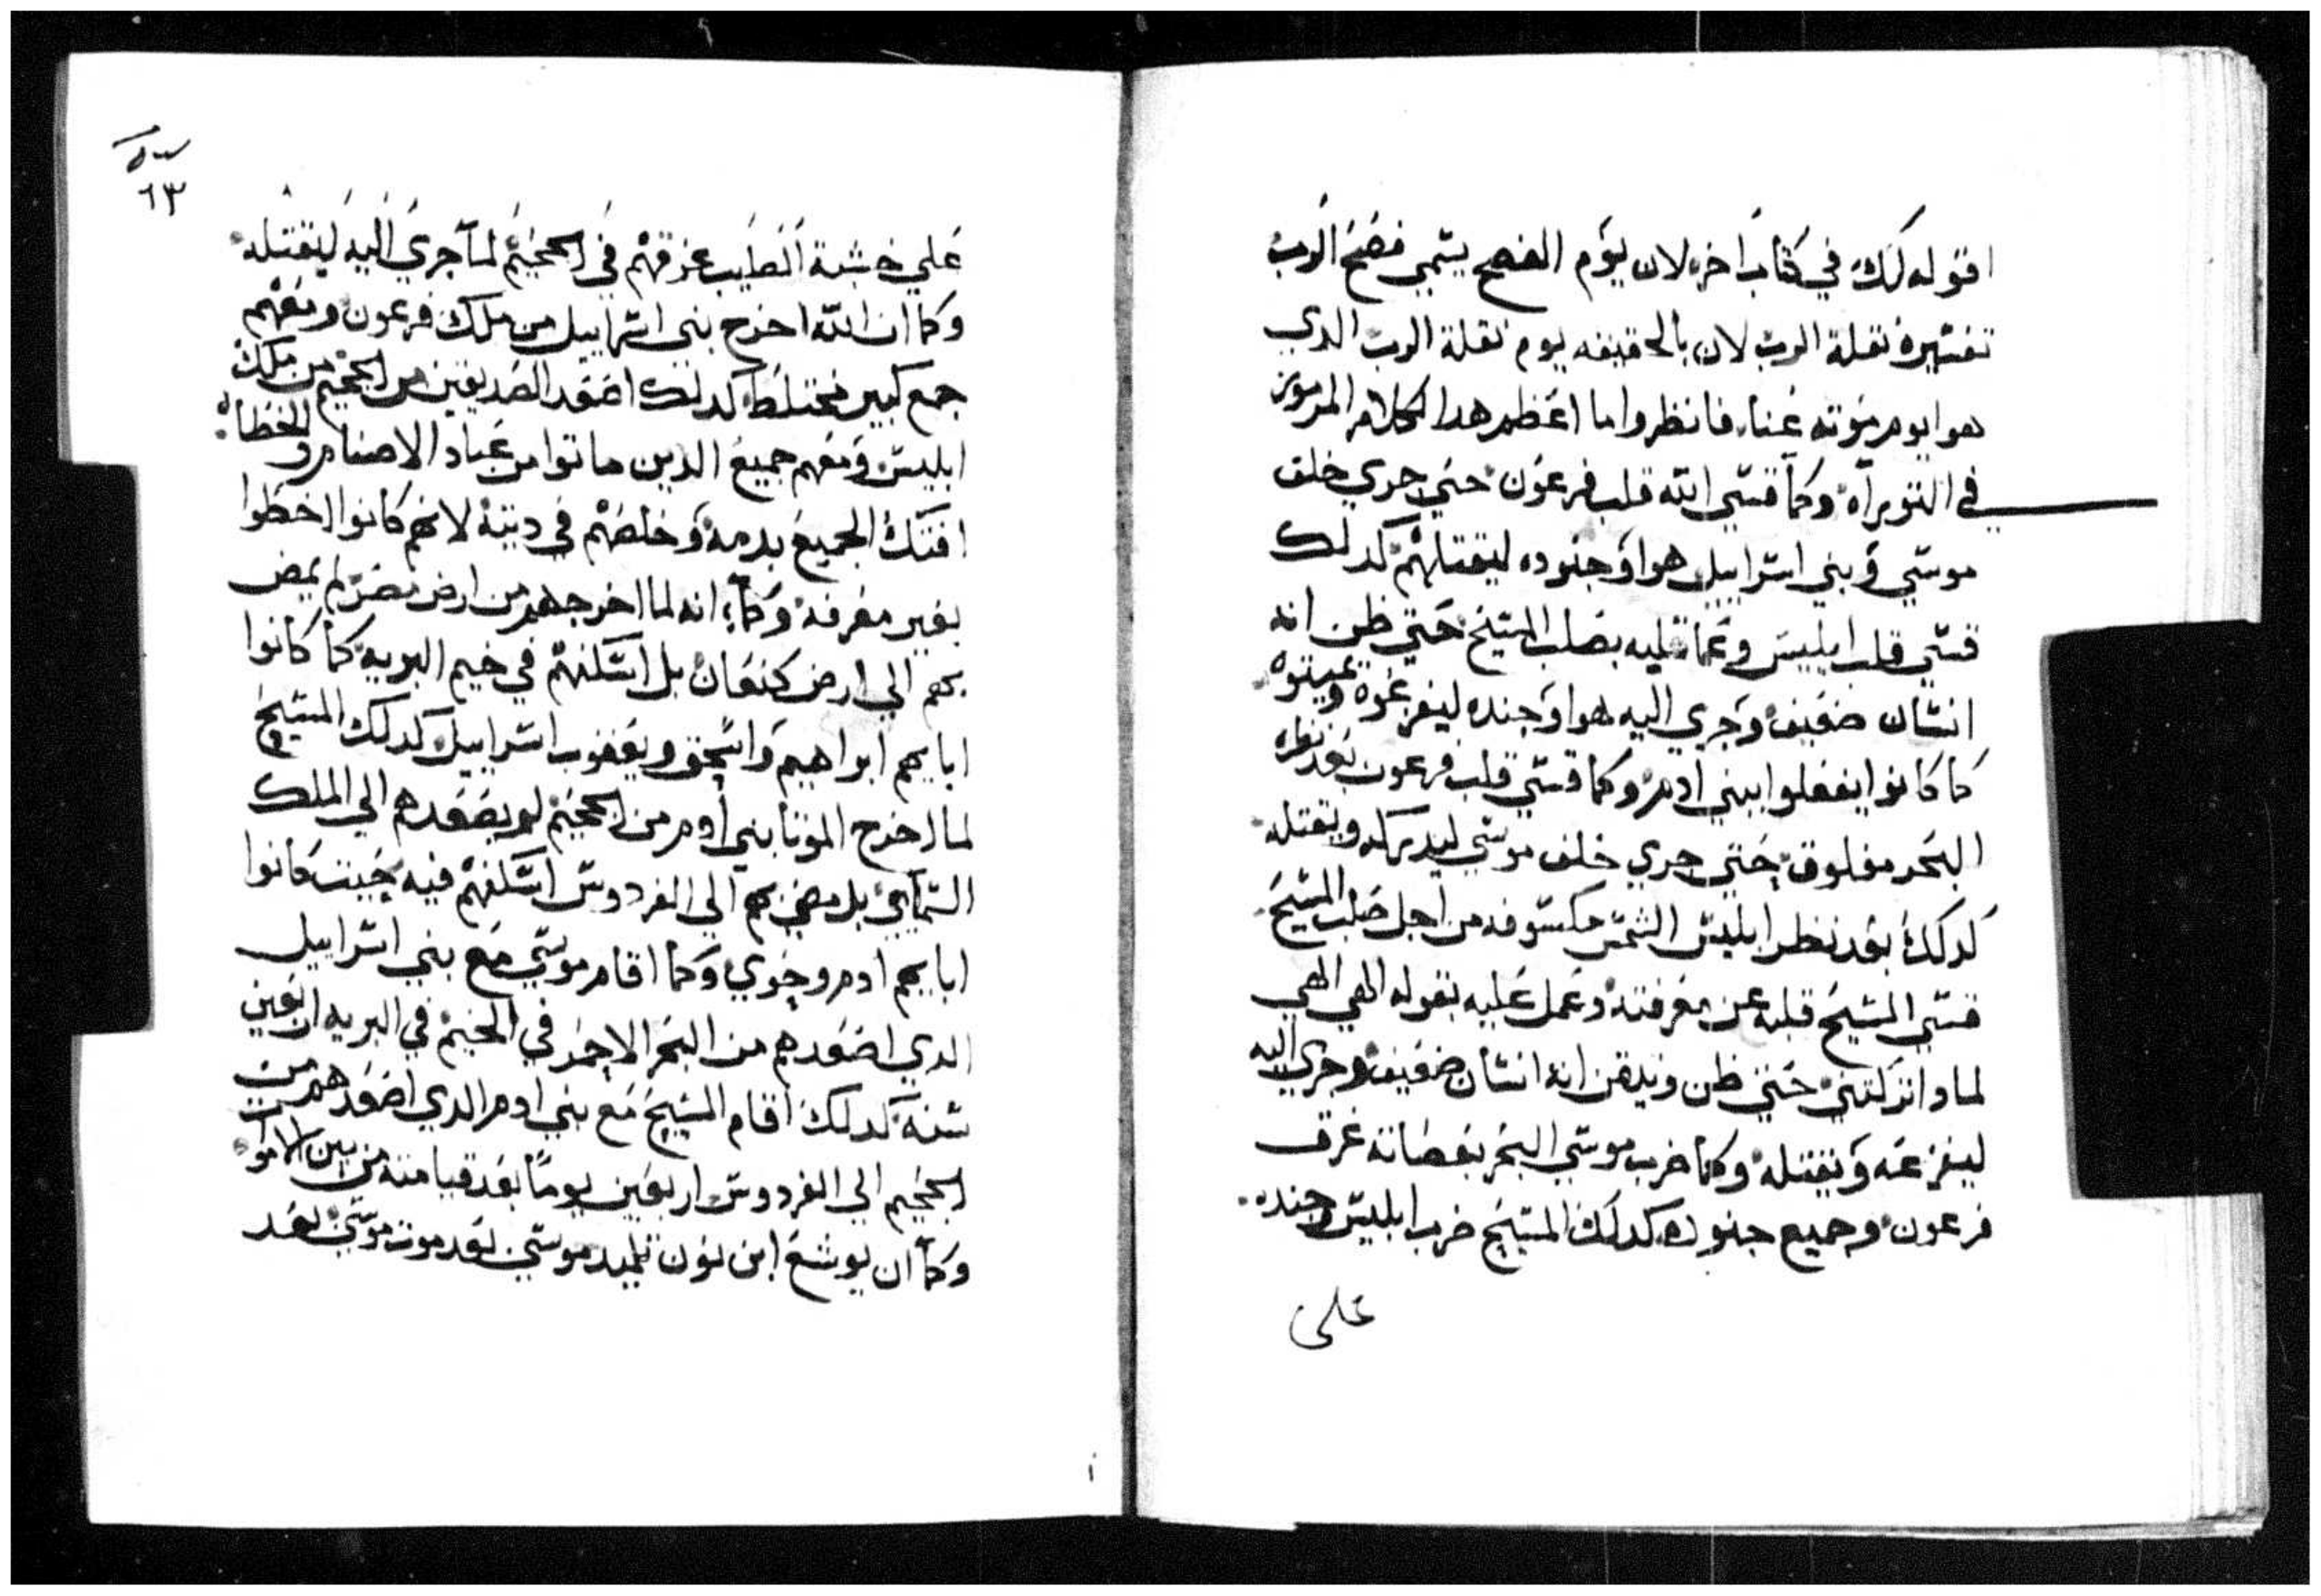 اقوله لك في كتاب اخر لان يوم الفصح يسمي فصح الرب
تفسيره نقلة الرب لان بالحقيقه يوم نقلة الرب الدي
هوا يوم موته عنا فانظروا ما اعظم هدا الكلام المرموز
في التوراه وكما قسي الله قلب فرعون حتي جري خلف
موسي وبني اسراييل هوا وجنوده ليقتلهم كدلك
قسي قلب ابليس وعماه بصلب المسيح حتي ظن انه
انسان ضعيف وجري اليه هوا وجنده ليفزعوه ويميتوه
كما كانوا يفعلوا ببني ادم وكما قسي قلب فرعون بعد نظره
البحر مفلوق حتي جري خلف موسي ليدركه ويقتله
كدلك بعد نظر ابليس الشمس مكسوفه من اجل صلب المسيح
قسي المسيح قلبه عن معرفته وعمل عليه بقوله الهي الهي
لمادا تركتني حتي ظن وتيقن انه انسان ضعيف وجري اليه
ليفزعه ويقتله وكما ضرب موسي البحر بعصاته غرق
فرعون وجميع جنوده كدلك المسيح ضرب ابليس وجنده
علي
٦٣
علي خشبة الصليب غرقهم في الجحيم لما جري اليه ليقتله
وكما ان الله اخرج بني اسراييل من ملك فرعون ومعهم
جمع كبير مختلط كدلك اصعد الصديقين من الجحيم من ملك
ابليس ومعهم جميع الدين ماتوا من عباد الاصنام والخطاه
افتك الجميع بدمه وخلصهم في دينه لانهم كانوا اخطوا
بغير معرفه وكما انه لما اخرجهم من ارض مصر لم يمض
بهم الي ارض كنعان بل اسكنهم في خيم البريه كما كانوا
ابايهم ابراهيم واسحق ويعقوب اسراييل كدلك المسيح
لما اخرج الموتا بني ادم من الجحيم لم يصعدهم الي الملك
السمايي بل مضي بهم الي الفردوس اسكنهم فيه حيت كانوا
ابايهم ادم وحوي وكما اقام موسي مع بني اسراييل
الدي اصعدهم من البحر الاحمر في الخيم في البريه اربعين
سنة كدلك اقام المسيح مع بني ادم الدي اصعدهم من
الجحيم الي الفردوس اربعين يوما بعد قيامته من بين الاموات
وكما ان يوشع ابن نون تلميد موسي بعد موت موسي بعد